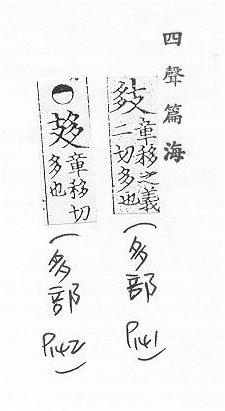 四聲篇海
章移之義
二切多也
(多部
P141)
章移切
多也
(多部
P142)